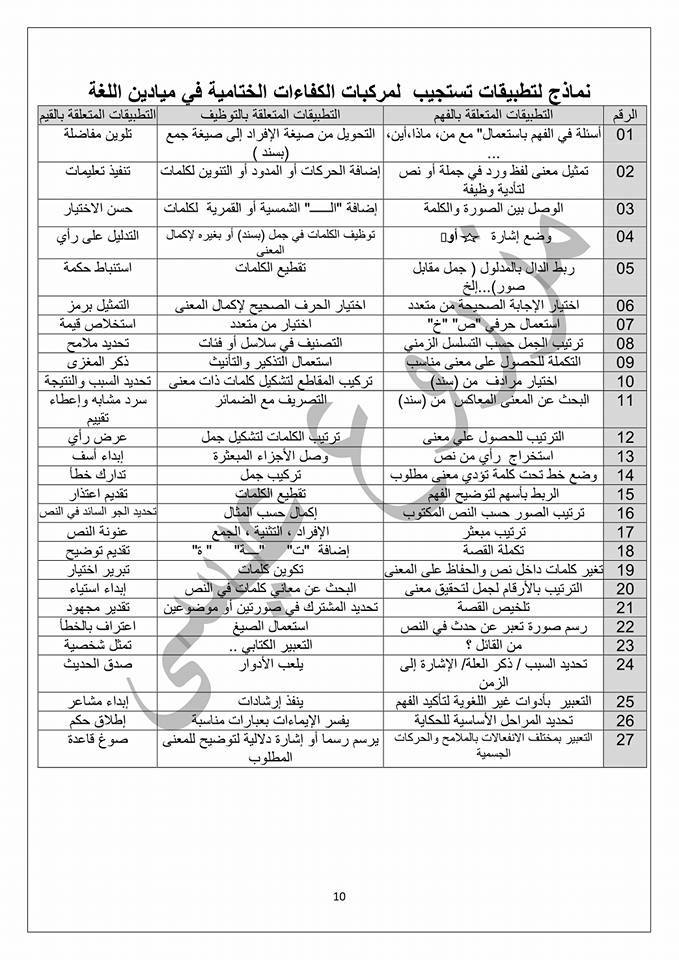 نماذج لتطبيقات تستجيب لمركبات الكفاءات الختامية في ميادين اللغة
الرقم التطبيقات المتعلقة بالفهم التطبيقات المتعلقة بالتوظيف التطبيقات المتعلقة بالقيم
01 أسئلة في الفهم باستعمال" مع من، ماذا،أين، ... التحويل من صيغة الإفراد إلى صيغة جمع (بسند ) تلوين مفاضلة
02 تمثيل معنى لفظ ورد في جملة أو نص لتأدية وظيفة إضافة الحركات أو المدود أو التنوين لكلمات تنفيذ تعليمات
03 الوصل بين الصورة والكلمة إضافة "الـــــ" الشمسية أو القمرية لكلمات حسن الاختيار
04 وضع إشارة ☆ أو توظيف الكلمات في جمل (بسند) أو بغيره لإكمال المعنى التدليل على رأي
05 ربط الدال بالمدلول ( جمل مقابل صور)...إلخ تقطيع الكلمات استنباط حكمة
06 اختيار الإجابة الصحيحة من متعدد اختيار الحرف الصحيح لإكمال المعنى التمثيل برمز
07 استعمال حرفي "ص" "خ" اختيار من متعدد استخلاص قيمة
08 ترتيب الجمل حسب التسلسل الزمني التصنيف في سلاسل أو فئات تحديد ملامح
09 التكملة للحصول على معنى مناسب استعمال التذكير والتأنيث ذكر المغزى
10 اختيار مرادف من (سند) تركيب المقاطع لتشكيل كلمات ذات معنى تحديد السبب والنتيجة
11 البحث عن المعنى المعاكس من (سند) التصريف مع الضمائر سرد مشابه وإعطاء تقييم
12 الترتيب للحصول على معنى ترتيب الكلمات لتشكيل جمل عرض رأي
13 استخراج رأي من نص وصل الأجزاء المبعثرة إبداء أسف
14 وضع خط تحت كلمة تؤدي معنى مطلوب تركيب جمل تدارك خطأ
15 الربط بأسهم لتوضيح الفهم تقطيع الكلمات تقديم اعتذار
16 ترتيب الصور حسب النص المكتوب إكمال حسب المثال تحديد الجو السائد في النص
17 ترتيب مبعثر الإفراد ، التثنية ، الجمع عنونة النص
18 تكملة القصة إضافة "ت" "ـــة" " ة" تقديم توضيح
19 تغير كلمات داخل نص والحفاظ على المعنى تكوين كلمات تبرير اختيار
20 الترتيب بالأرقام لجمل لتحقيق معنى البحث عن معاني كلمات في النص إبداء استياء
21 تلخيص القصة تحديد المشترك في صورتين أو موضوعين تقدير مجهود
22 رسم صورة تعبر عن حدث في النص استعمال الصيغ اعتراف بالخطأ
23 من القائل ؟ التعبير الكتابي .. تمثل شخصية
24 تحديد السبب / ذكر العلة/ الإشارة إلى الزمن يلعب الأدوار صدق الحديث
25 التعبير بأدوات غير اللغوية لتأكيد الفهم ينفذ إرشادات إبداء مشاعر
26 تحديد المراحل الأساسية للحكاية يفسر الإيماءات بعبارات مناسبة إطلاق حكم
27 التعبير بمختلف الانفعالات بالملامح والحركات الجسمية يرسم رسما أو إشارة دلالية لتوضيح للمعنى المطلوب صوغ قاعدة
10